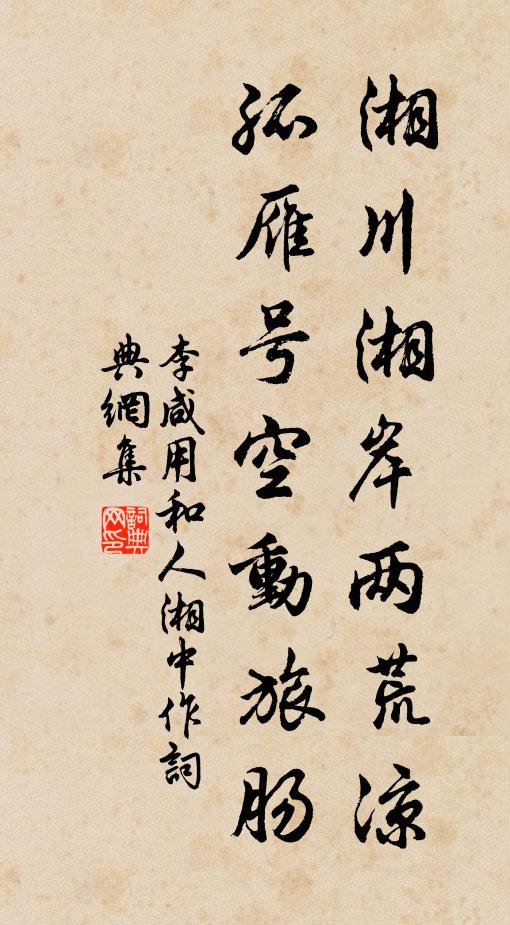 湘川湘岸两荒凉
孤雁号空動旅肠
李咸用和人湘中作詞
典網集
詞典网印